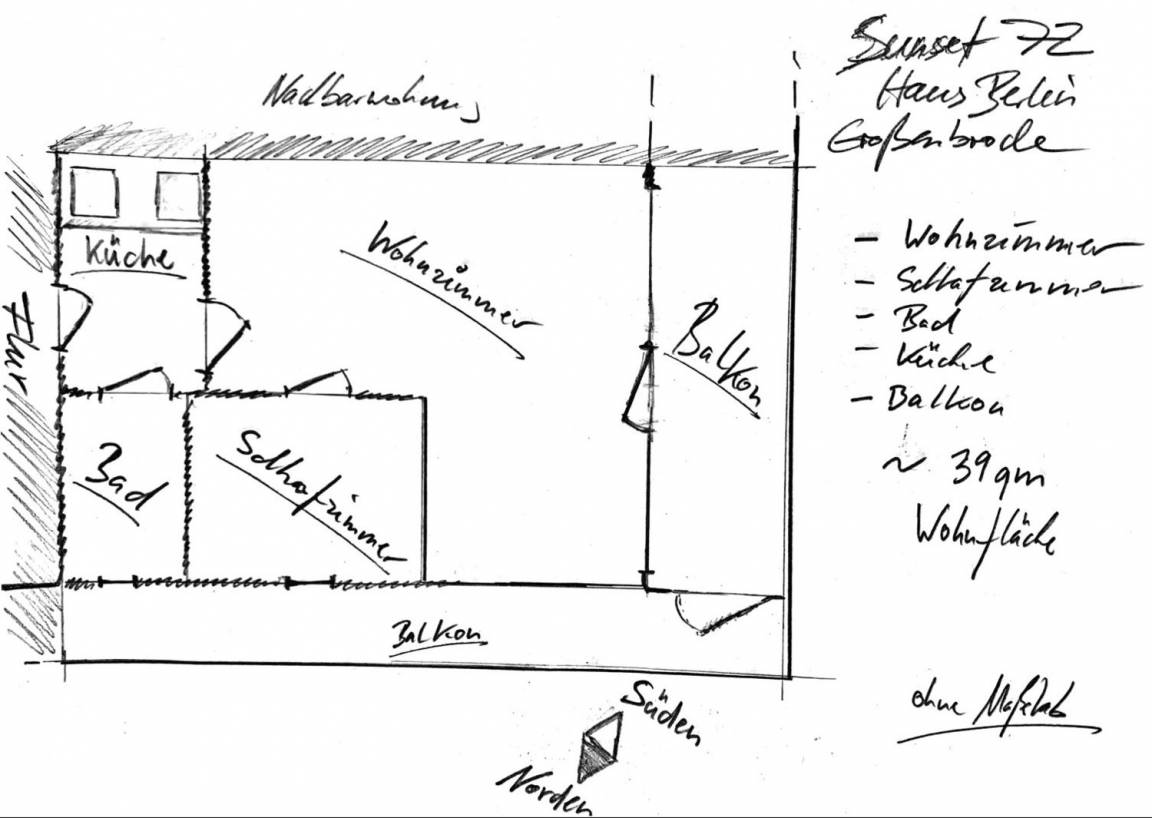 Sunset 72
Haus Berlin
Großenbrode
Nachbarwohnung
Küche
Wohnzimmer
Flur
Balkon
Bad
Schlafzimmer
Balkon
Süden
Norden
– Wohnzimmer
– Schlafzimmer
– Bad
– Küche
– Balkon
~ 39 qm
Wohnfläche
ohne Maßstab